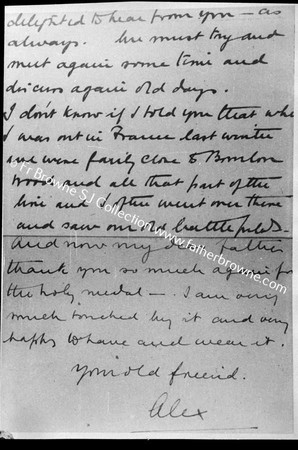 delighted to hear from you — as
always. We must try and
meet again some time and
discuss again old days.
I don't know if I told you that when
I was out in France last winter
we were fairly close to Bourlon
Wood and all that part of the
line and I often went over there
and saw our old battlefields.
And now my dear father
thank you so much again for
the holy medal — I am very
much touched by it and very
happy to have and wear it.
Your old friend.
Alex
Fr Browne SJ Collection